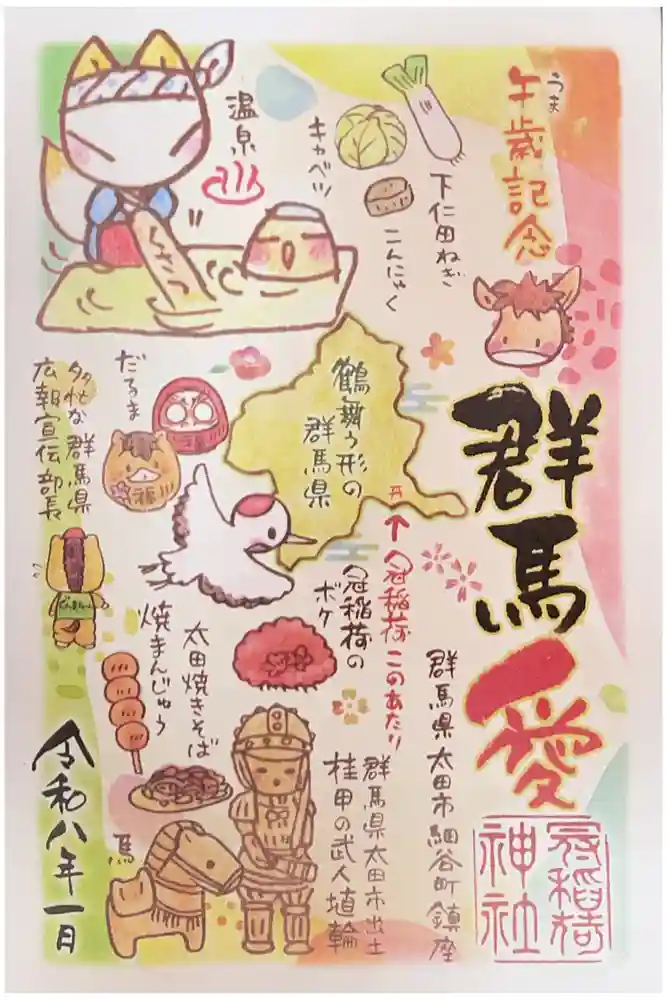 うま
午歳記念
群馬愛
冠稲荷
神社
下仁田ねぎ
こんにゃく
キャベツ
温泉
鶴舞う形の
群馬県
冠稲荷このあたり
群馬県太田市細谷町鎮座
冠稲荷の
ボケ
群馬県太田市出土
桂甲の武人埴輪
だるま
福
多忙な群馬県
広報宣伝部長
ぐんまちゃん
太田焼きそば
焼まんじゅう
馬
令和八年一月